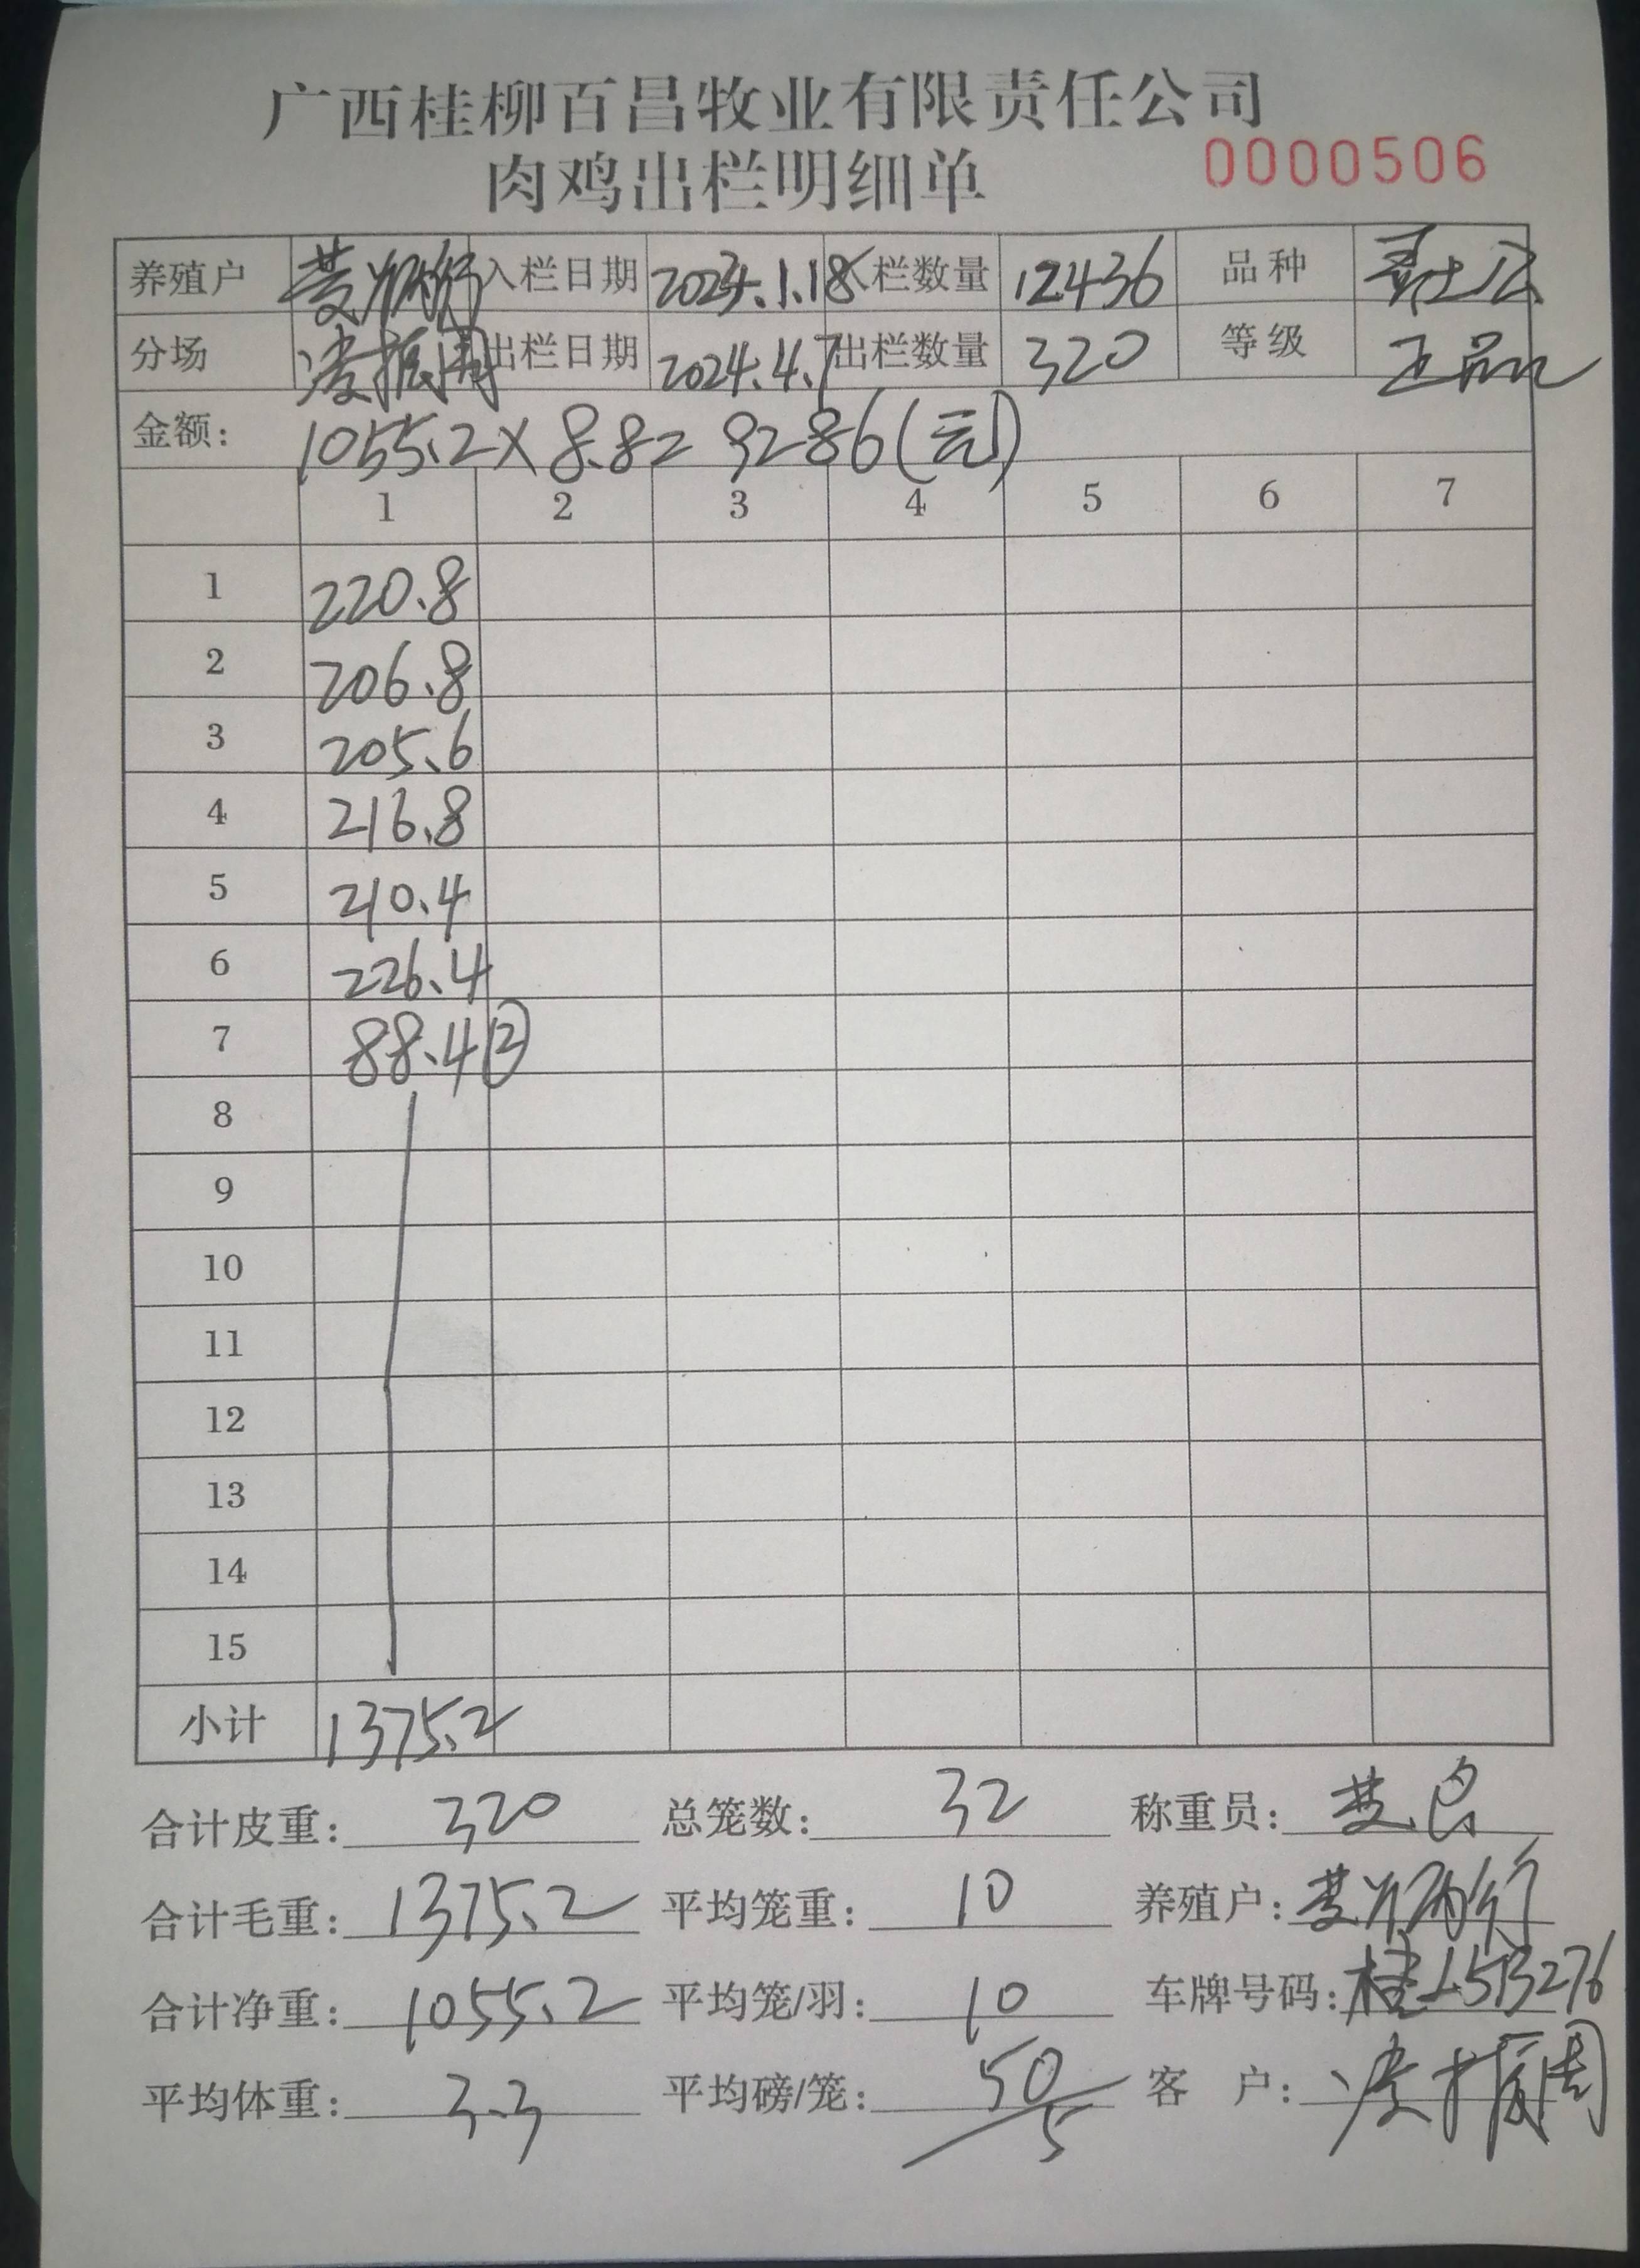 广西桂柳百昌牧业有限责任公司
肉鸡出栏明细单 0000506
养殖户 入栏日期 2024.1.18 入栏数量 12436 品种
分场 凌振周 出栏日期 2024.4.7 出栏数量 320 等级 正品
金额: 1055.2×8.8= 9286(元)
1 2 3 4 5 6 7
1 220.8
2 206.8
3 205.6
4 216.8
5 210.4
6 226.4
7 88.4 ②
8
9
10
11
12
13
14
15
小计 1375.2
合计皮重: 320 总笼数: 32 称重员:
合计毛重: 1375.2 平均笼重: 10 养殖户:
合计净重: 1055.2 平均笼/羽: 10 车牌号码:
平均体重: 3.3 平均磅/笼: 50/5 客 户: 凌振周